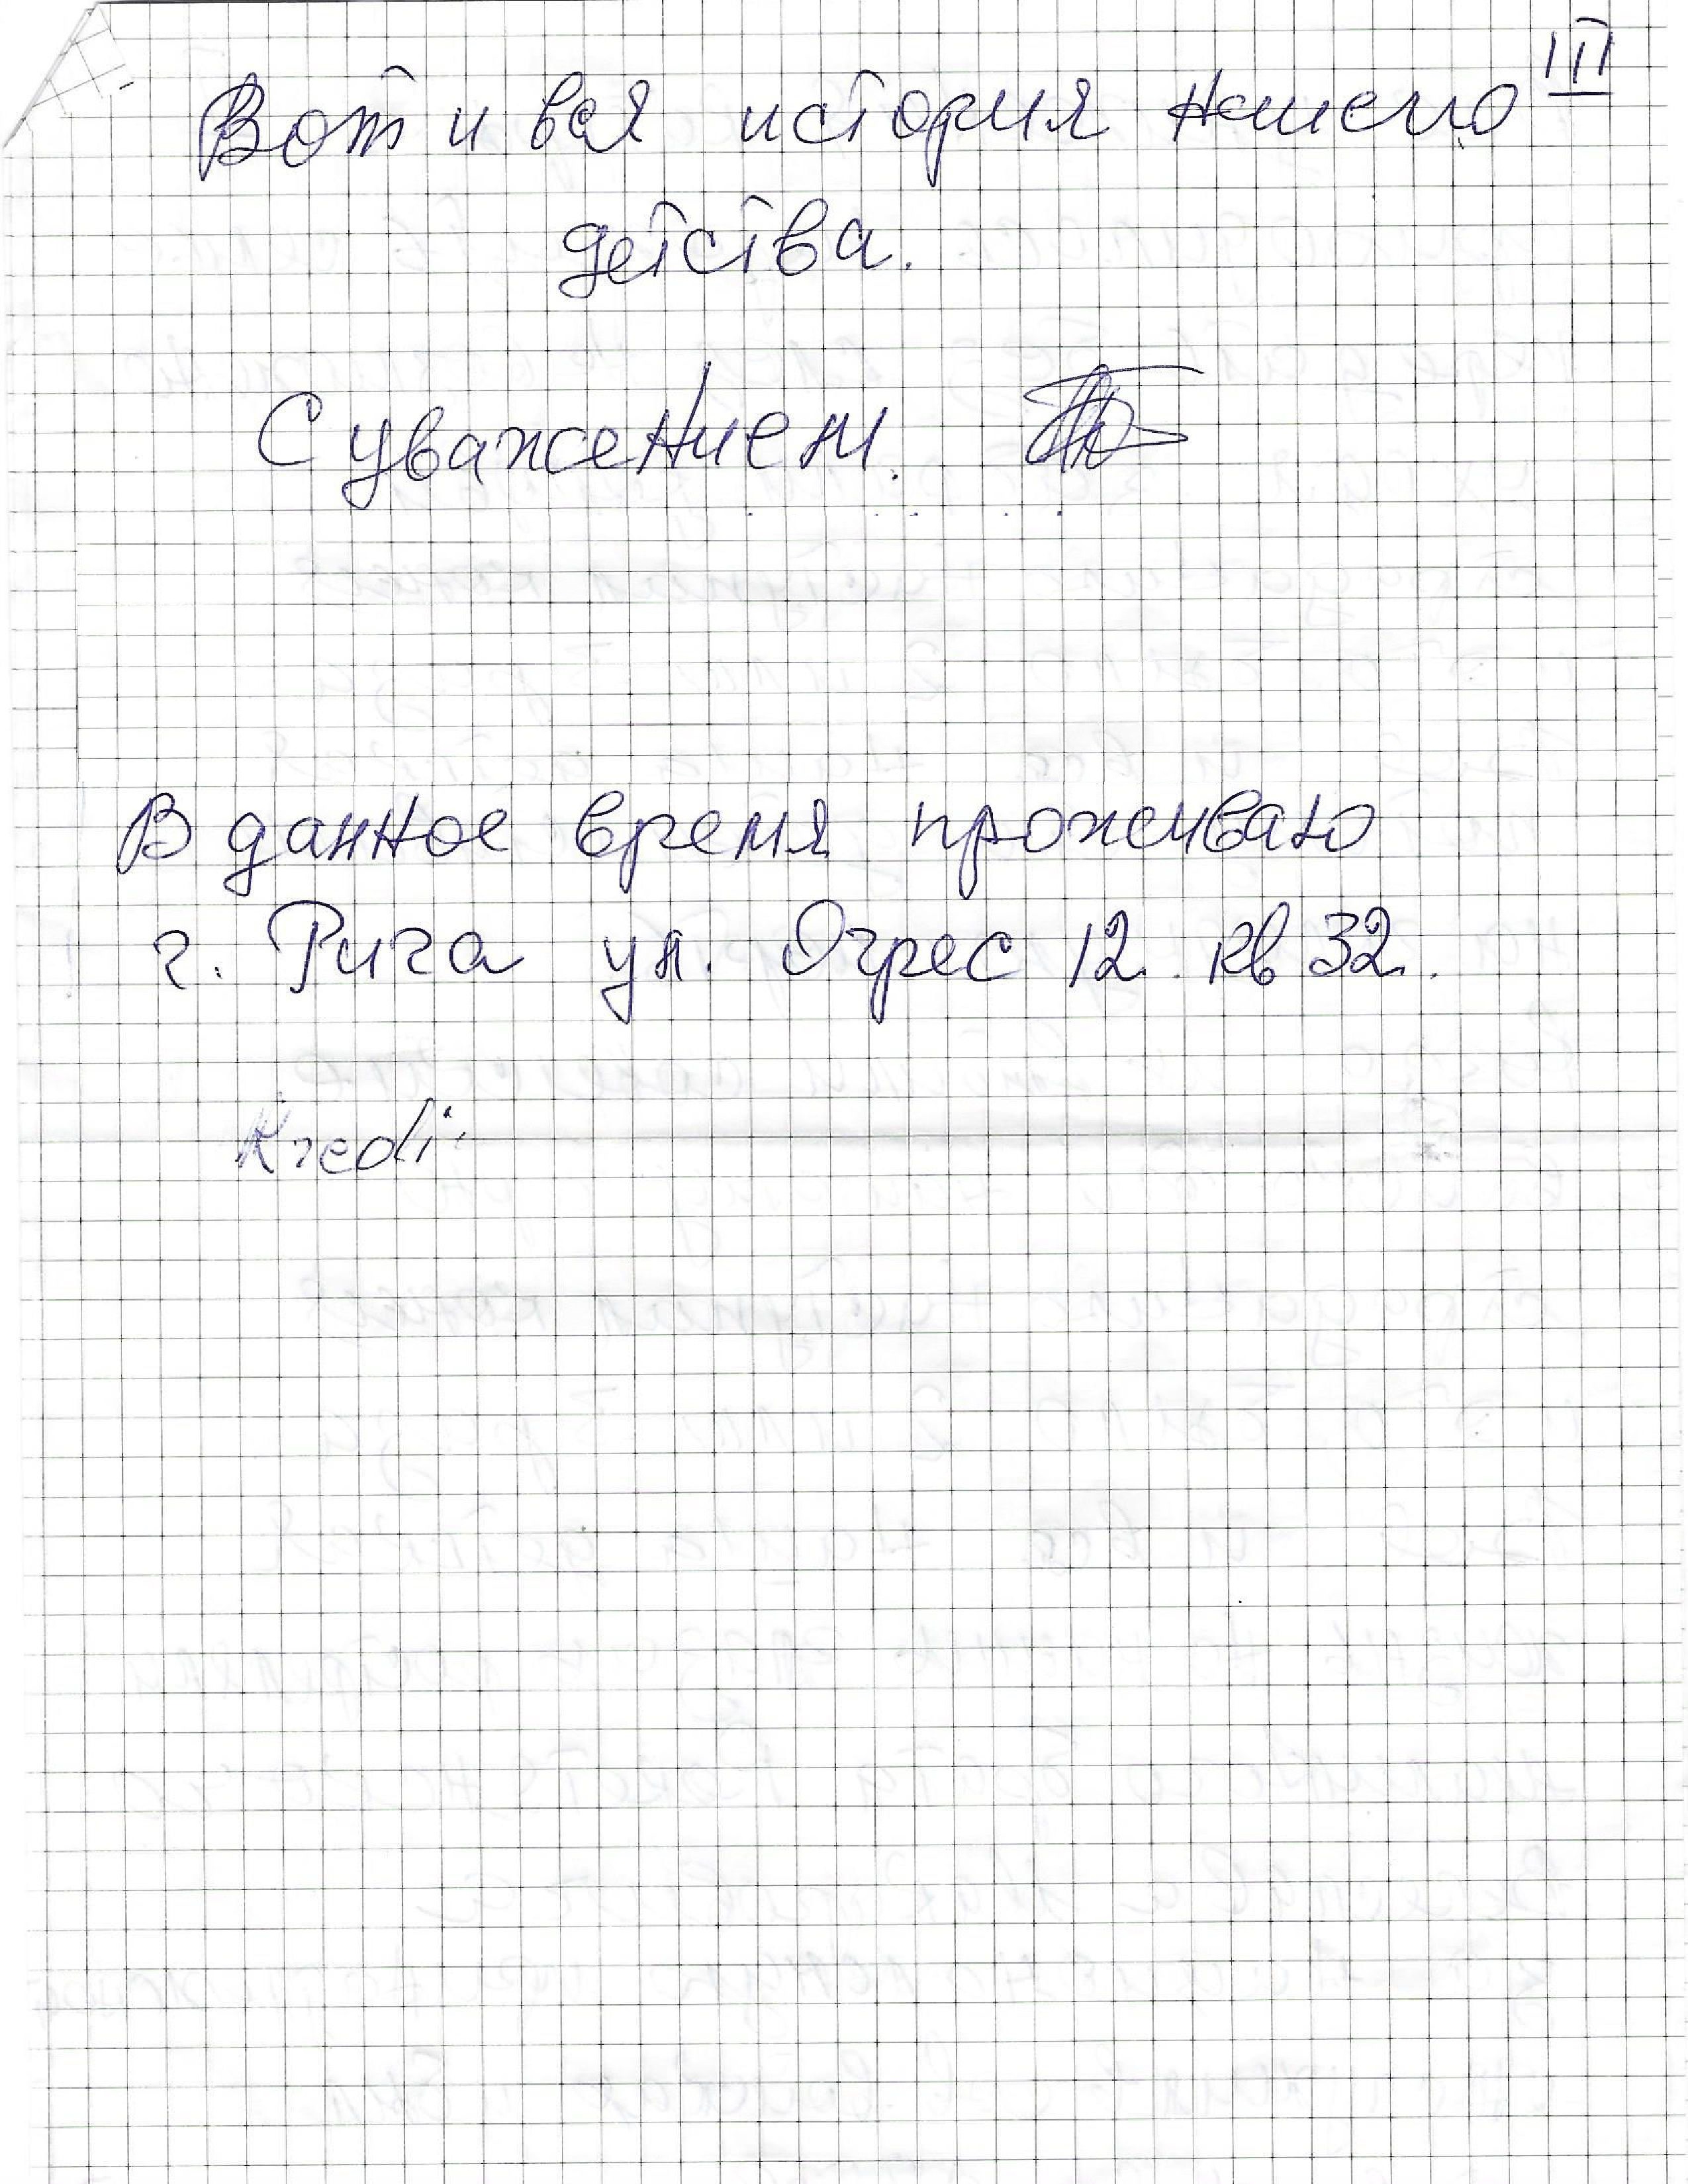 III
Вот и вся история нашего
детства.
С уважением.
В данное время проживаю
г. Рига ул. Огрес 12. кв 32.
Kredi